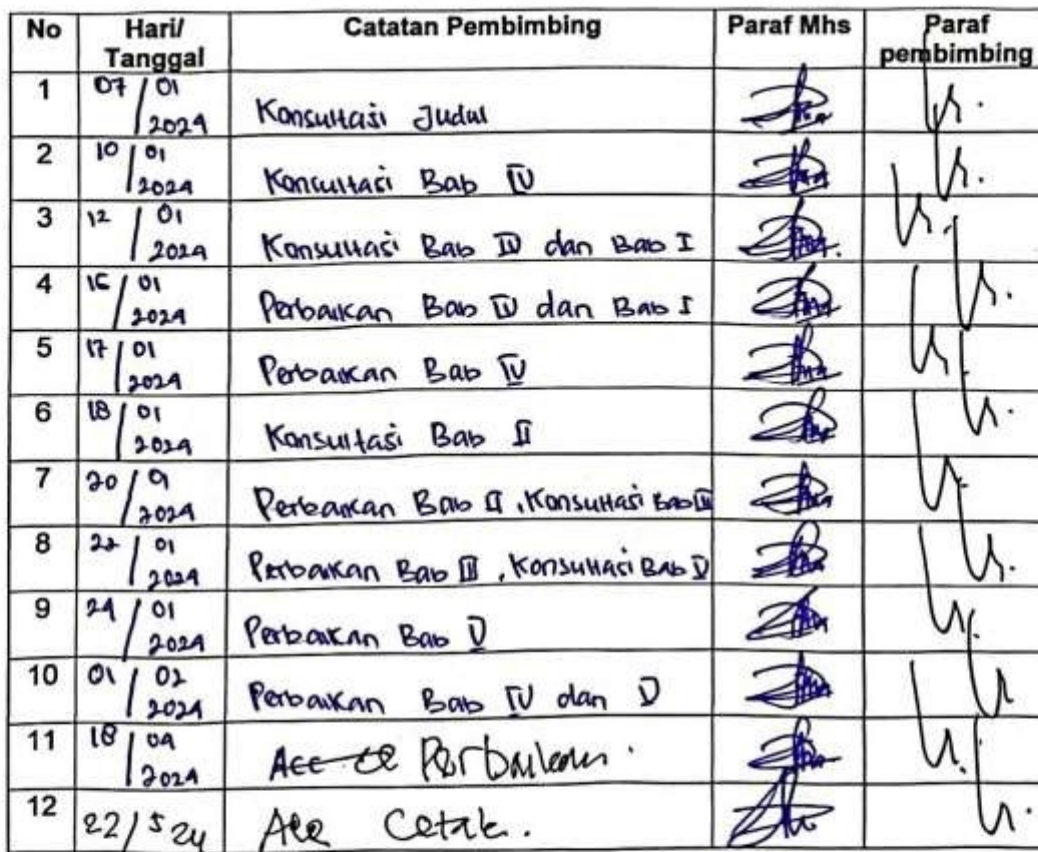 No Hari/ Tanggal Catatan Pembimbing Paraf Mhs Paraf pembimbing
1 07/01 2024 Konsultasi Judul
2 10/01 2024 Konsultasi Bab IV
3 12/01 2024 Konsultasi Bab IV dan Bab I
4 16/01 2024 Perbaikan Bab IV dan Bab I
5 17/01 2024 Perbaikan Bab IV
6 18/01 2024 Konsultasi Bab II
7 20/01 2024 Perbaikan Bab II, Konsultasi Bab III
8 22/01 2024 Perbaikan Bab III, Konsultasi Bab V
9 24/01 2024 Perbaikan Bab V
10 01/02 2024 Perbaikan Bab IV dan V
11 18/04 2024 Acc Perbaikan.
12 22/5 24 Acc Cetak.